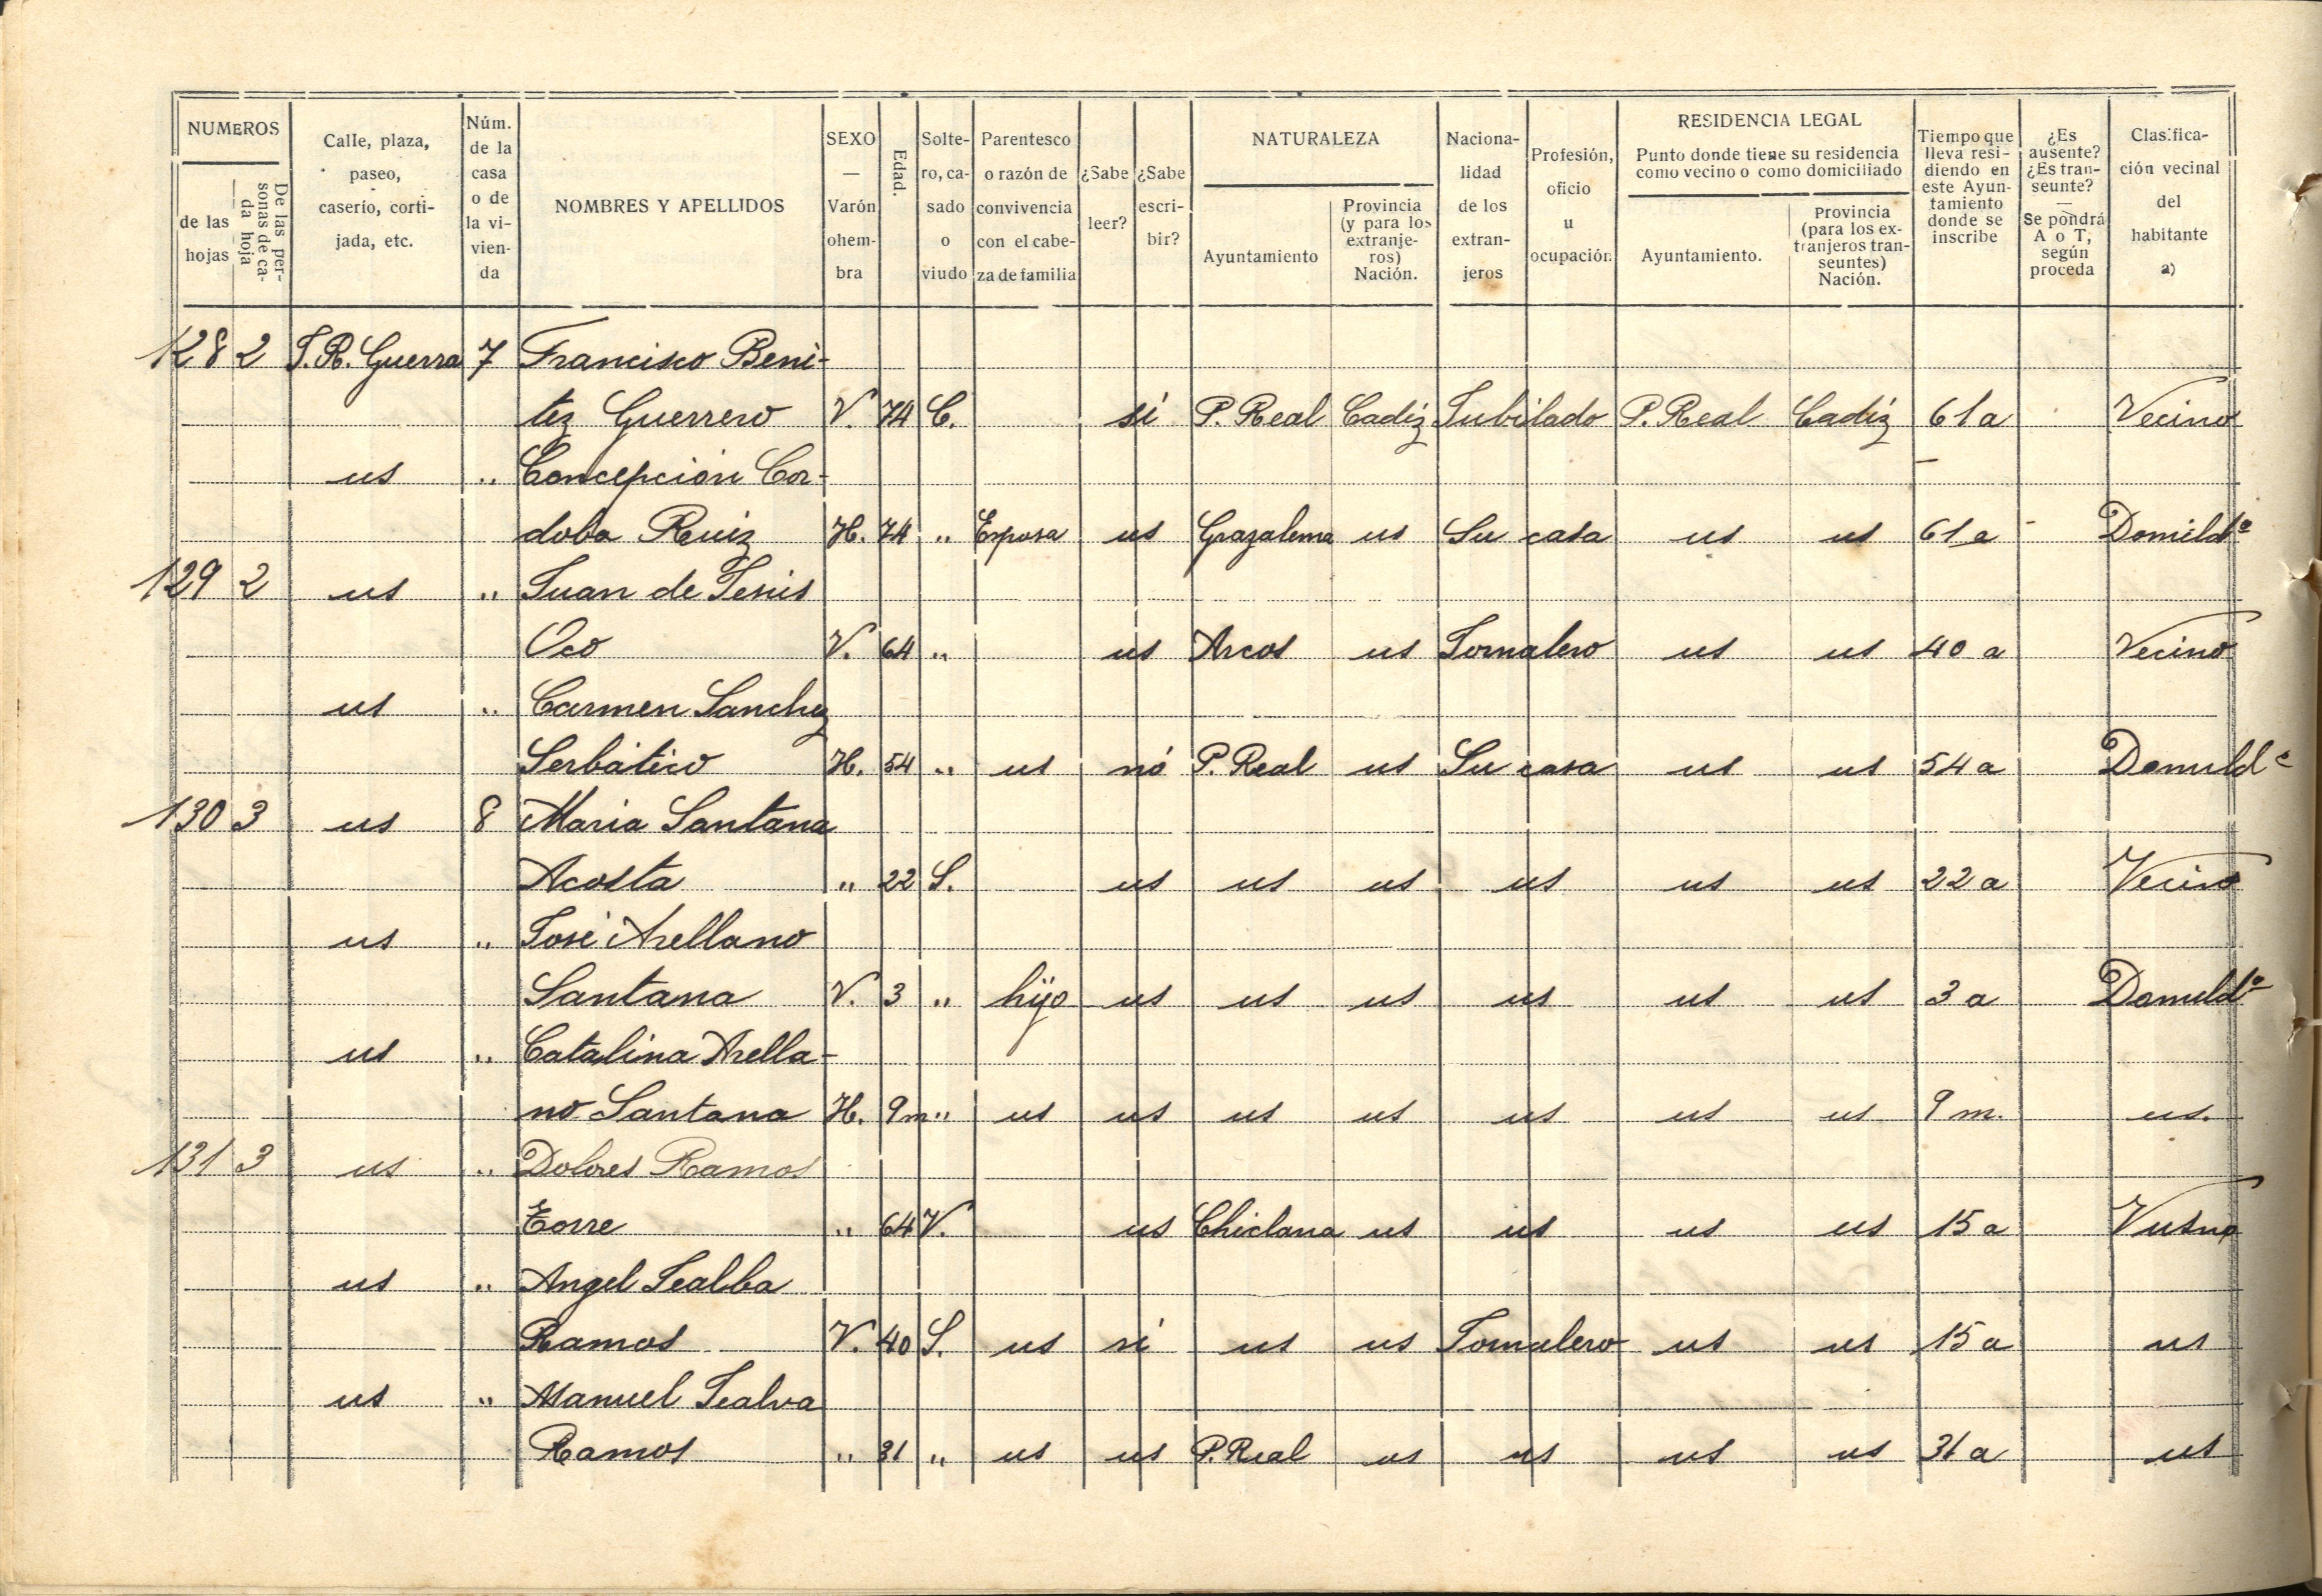 NUMEROS
de las hojas
De las personas de cada hoja
Calle, plaza, paseo, caserío, cortijada, etc.
Núm. de la casa o de la vivienda
NOMBRES Y APELLIDOS
SEXO — Varón ohembra
Edad.
Soltero, casado o viudo
Parentesco o razón de convivencia con el cabeza de familia
¿Sabe leer?
¿Sabe escribir?
NATURALEZA
Ayuntamiento
Provincia (y para los extranjeros) Nación.
Nacionalidad de los extranjeros
Profesión, oficio u ocupación
RESIDENCIA LEGAL
Punto donde tiene su residencia como vecino o como domiciliado
Ayuntamiento.
Provincia (para los extranjeros transeuntes) Nación.
Tiempo que lleva residiendo en este Ayuntamiento donde se inscribe
¿Es ausente? ¿Es transeunte? — Se pondrá A o T, según proceda
Clasificación vecinal del habitante a)
128 2 J.R. Guerra 7 Francisco Beni-
tez Guerrero V. 74 C. si P. Real Cadiz Jubilado P. Real Cadiz 61 a Vecino
us " Concepción Cor-
doba Ruiz H. 74 " Esposa us Grazalema us Su casa us us 61 a Domildº
129 2 us " Juan de Jesús
Oco V. 64 " us Arcos us Jornalero us us 40 a Vecino
us " Carmen Sanchez
Serbático H. 54 " us nó P. Real us Su casa us us 54 a Domildº
130 3 us 8 Maria Santana
Acosta " 22 S. us us us us us us 22 a Vecino
us " José Arellano
Santana V. 3 " hijo us us us us us us 3 a Domildº
us " Catalina Arella-
no Santana H. 9 m " us us us us us us us 9 m. us.
131 3 us " Dolores Ramos
Torre " 64 V. us Chiclana us us us us 15 a Vecino
us " Angel Sealba
Ramos V. 40 S. us si us us Jornalero us us 15 a us
us " Manuel Sealva
Ramos " 31 " us us P. Real us us us us 31 a us